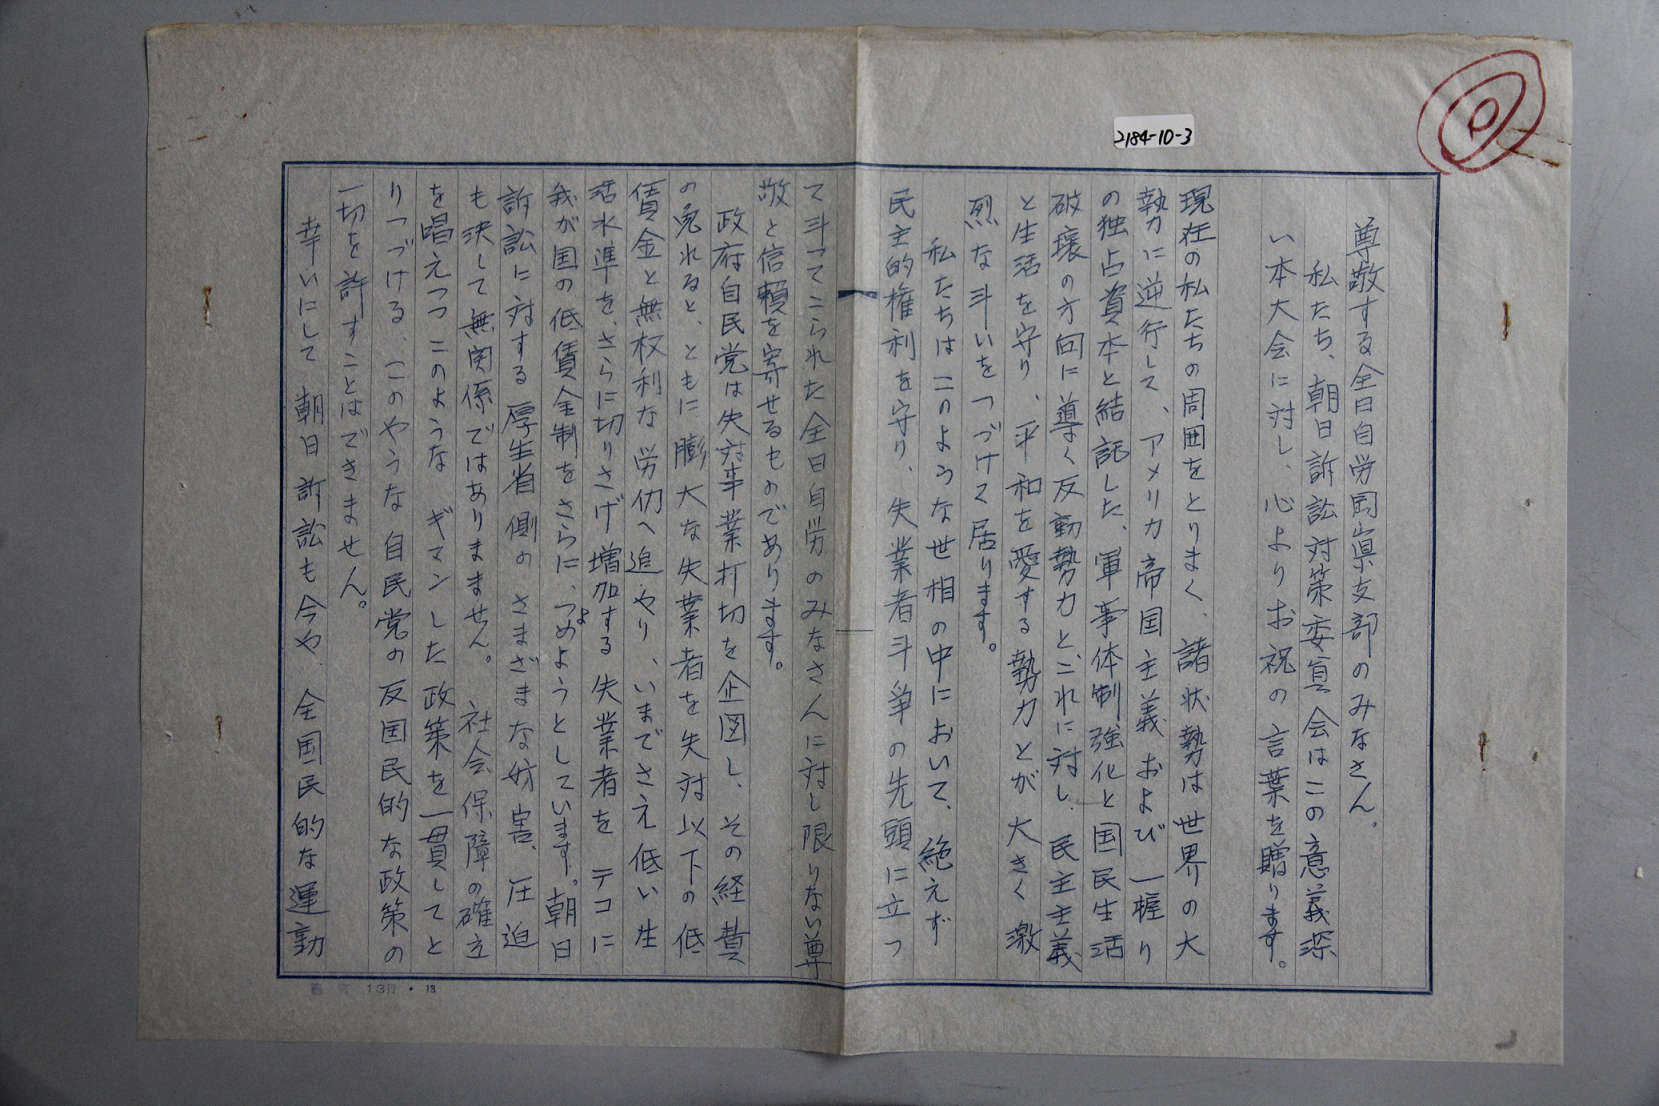 2184-10-3
尊敬する全日自労岡山県支部のみなさん。
私たち、朝日訴訟対策委員会はこの意義深
い本大会に対し、心よりお祝の言葉を贈ります。
現在の私たちの周囲をとりまく、諸状勢は世界の大
勢力に逆行して、アメリカ帝国主義および一握り
の独占資本と結託した、軍事体制強化と国民生活
破壊の方向に導く反動勢力と、これに対し、民主主義
と生活を守り、平和を愛する勢力とが大きく激
烈な斗いをつづけて居ります。
私たちはこのような世相の中において、絶えず
民主的権利を守り、失業者斗争の先頭に立つ
て斗つてこられた全日自労のみなさんに対し限りない尊
敬と信頼を寄せるものであります。
政府自民党は失対事業打切を企図し、その経費
の免れると、ともに膨大な失業者を失対以下の低
賃金と無权利な労仂へ追やり、いまでさえ低い生
活水準を、さらに切りさげ増加する失業者をテコに
我が国の低賃金制をさらに、つよめようとしています。朝日
訴訟に対する厚生省側のさまざまな妨害、圧迫
も決して無関係ではありまません。社会保障の確立
を唱えつつこのようなギマンした政策を一貫してと
りつづける、このやうな自民党の反国民的な政策の
一切を許すことはできません。
幸いにして朝日訴訟も今や、全国民的な運動
13行